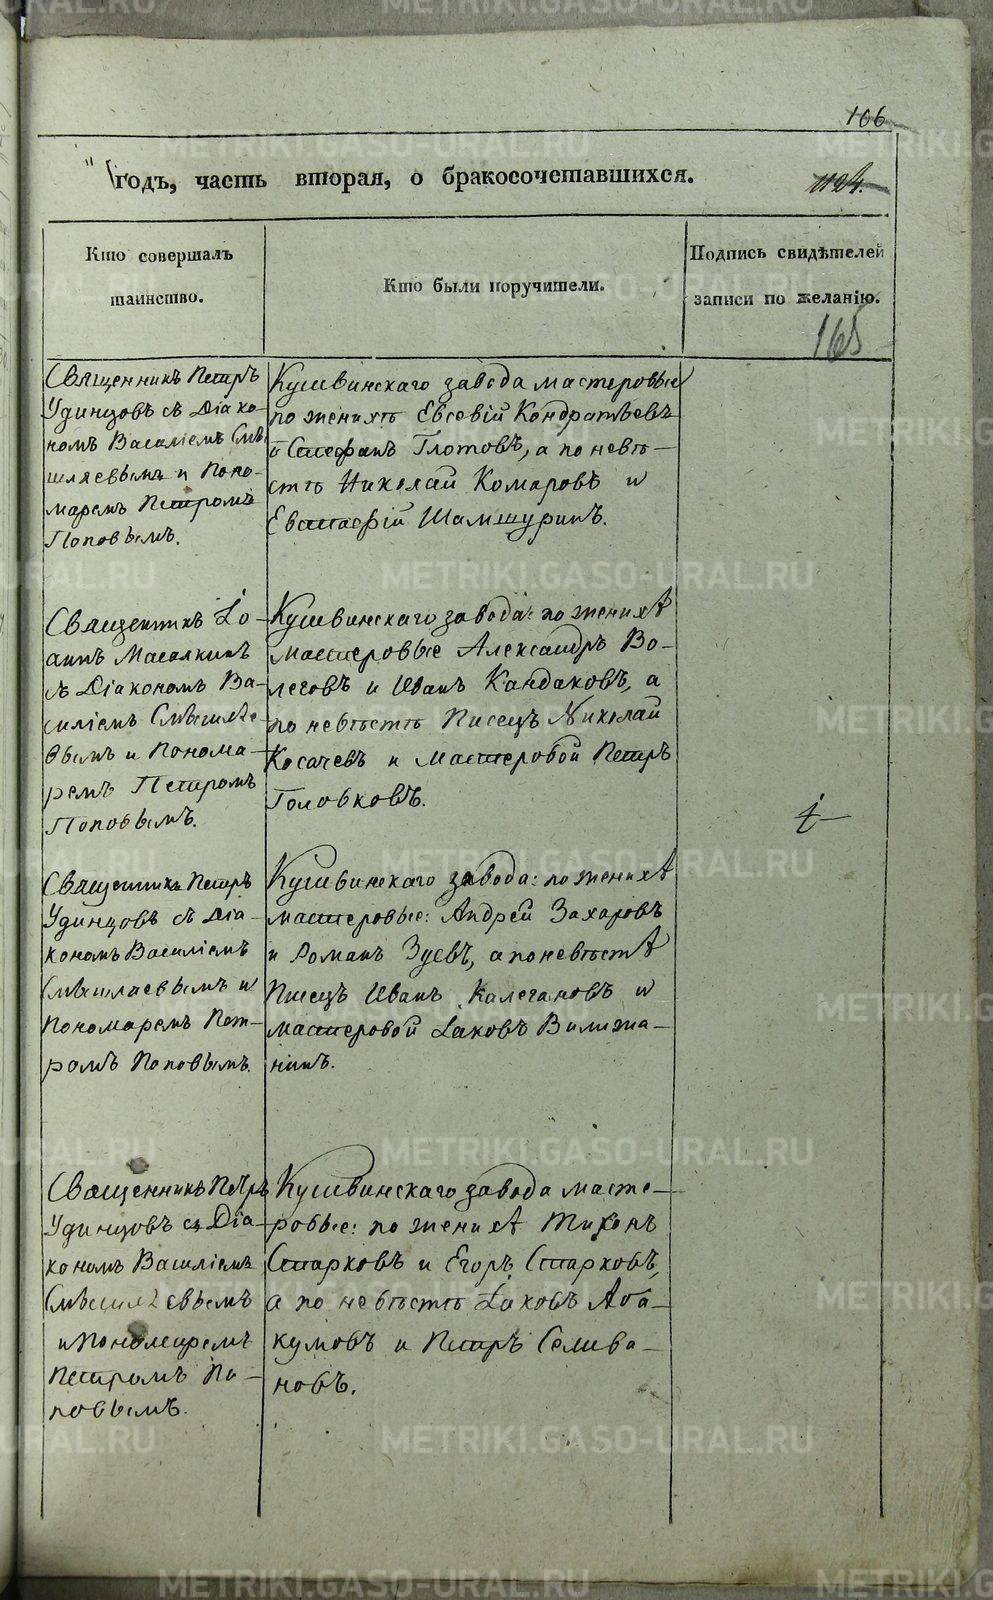 106
годъ, часть вторая, о бракосочетавшихся.
1124.
Кто совершалъ
таинство.
Кто были поручители.
Подпись свидѣтелей
записи по желанію.
165
Священникъ Петръ
Удинцовъ съ Діако-
номъ Василіемъ Смы
шляевымъ и Поно-
маремъ Петромъ
Поповымъ.
Кушвинскаго завода мастеровые
по женихѣ Евсевій Кондратьевъ
и Стефанъ Глотовъ, а по невѣ-
стѣ Николай Комаровъ и
Евстафій Шамшуринъ.
Священникъ Іо-
аннъ Масалкинъ
съ Діакономъ Ва-
силіемъ Смышляе-
вымъ и Понома-
ремъ Петромъ
Поповымъ.
Кушвинскаго завода: по женихѣ
мастеровые Александръ Во-
леговъ и Иванъ Кандаковъ, а
по невѣстѣ Писецъ Николай
Косачевъ и мастеровой Петръ
Головковъ.
Священникъ Петръ
Удинцовъ съ Діа-
кономъ Василіемъ
Смышляевымъ и
Пономаремъ Пет-
ромъ Поповымъ.
Кушвинскаго завода: по женихѣ
мастеровые: Андрей Захаровъ
и Романъ Зуевъ, а по невѣстѣ
Писецъ Иванъ Калегановъ и
мастеровой Іаковъ Вилижа-
нинъ.
Священникъ Петръ
Удинцовъ съ Діа-
кономъ Василіемъ
Смышляевымъ
и Пономаремъ
Петромъ По-
повымъ.
Кушвинскаго завода масте-
ровые: по женихѣ Тихонъ
Старковъ и Егоръ Старковъ,
а по невѣстѣ Іаковъ Аба-
кумовъ и Петръ Селива-
новъ.
METRIKI.GASO-URAL.RU